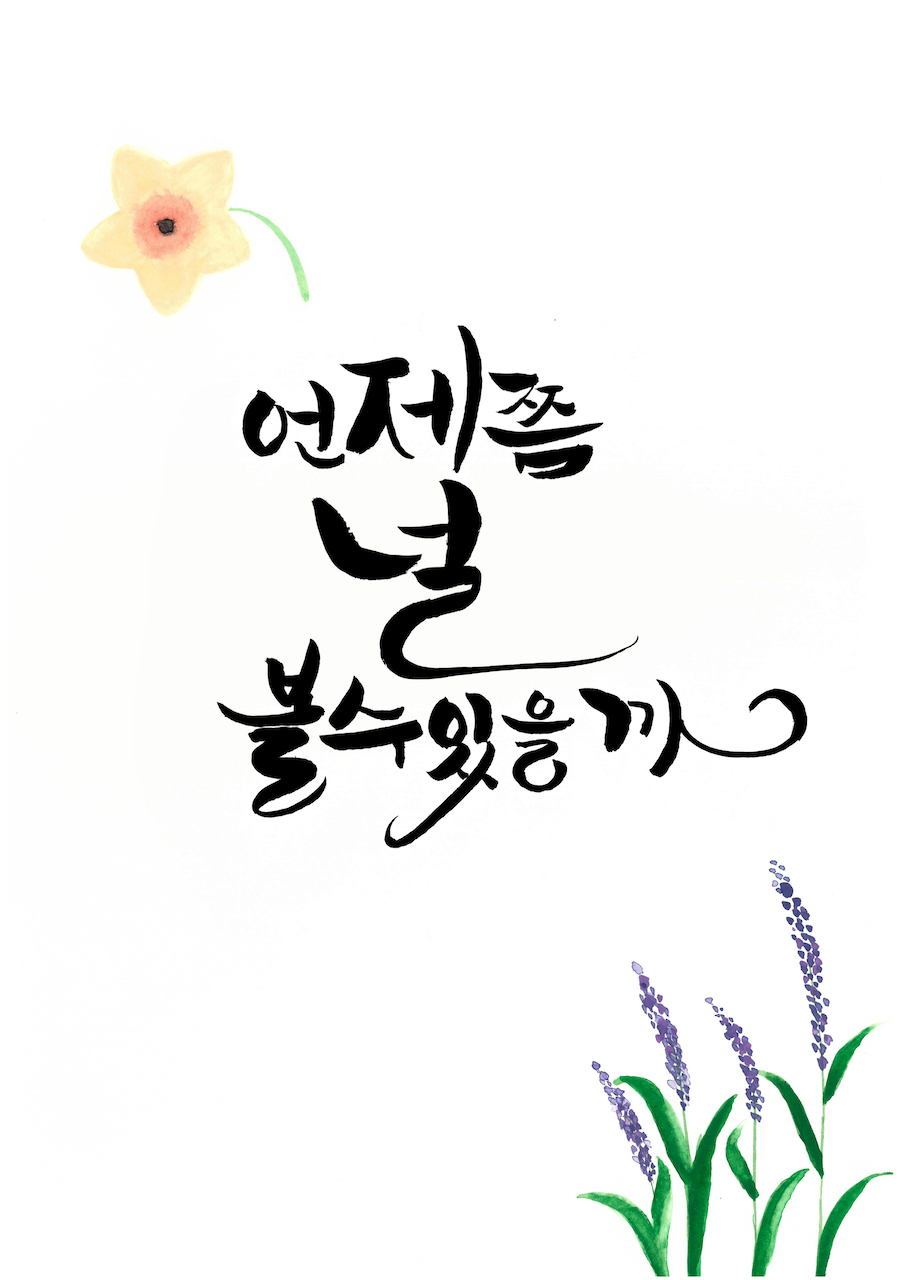 언제쯤
널
볼수있을까